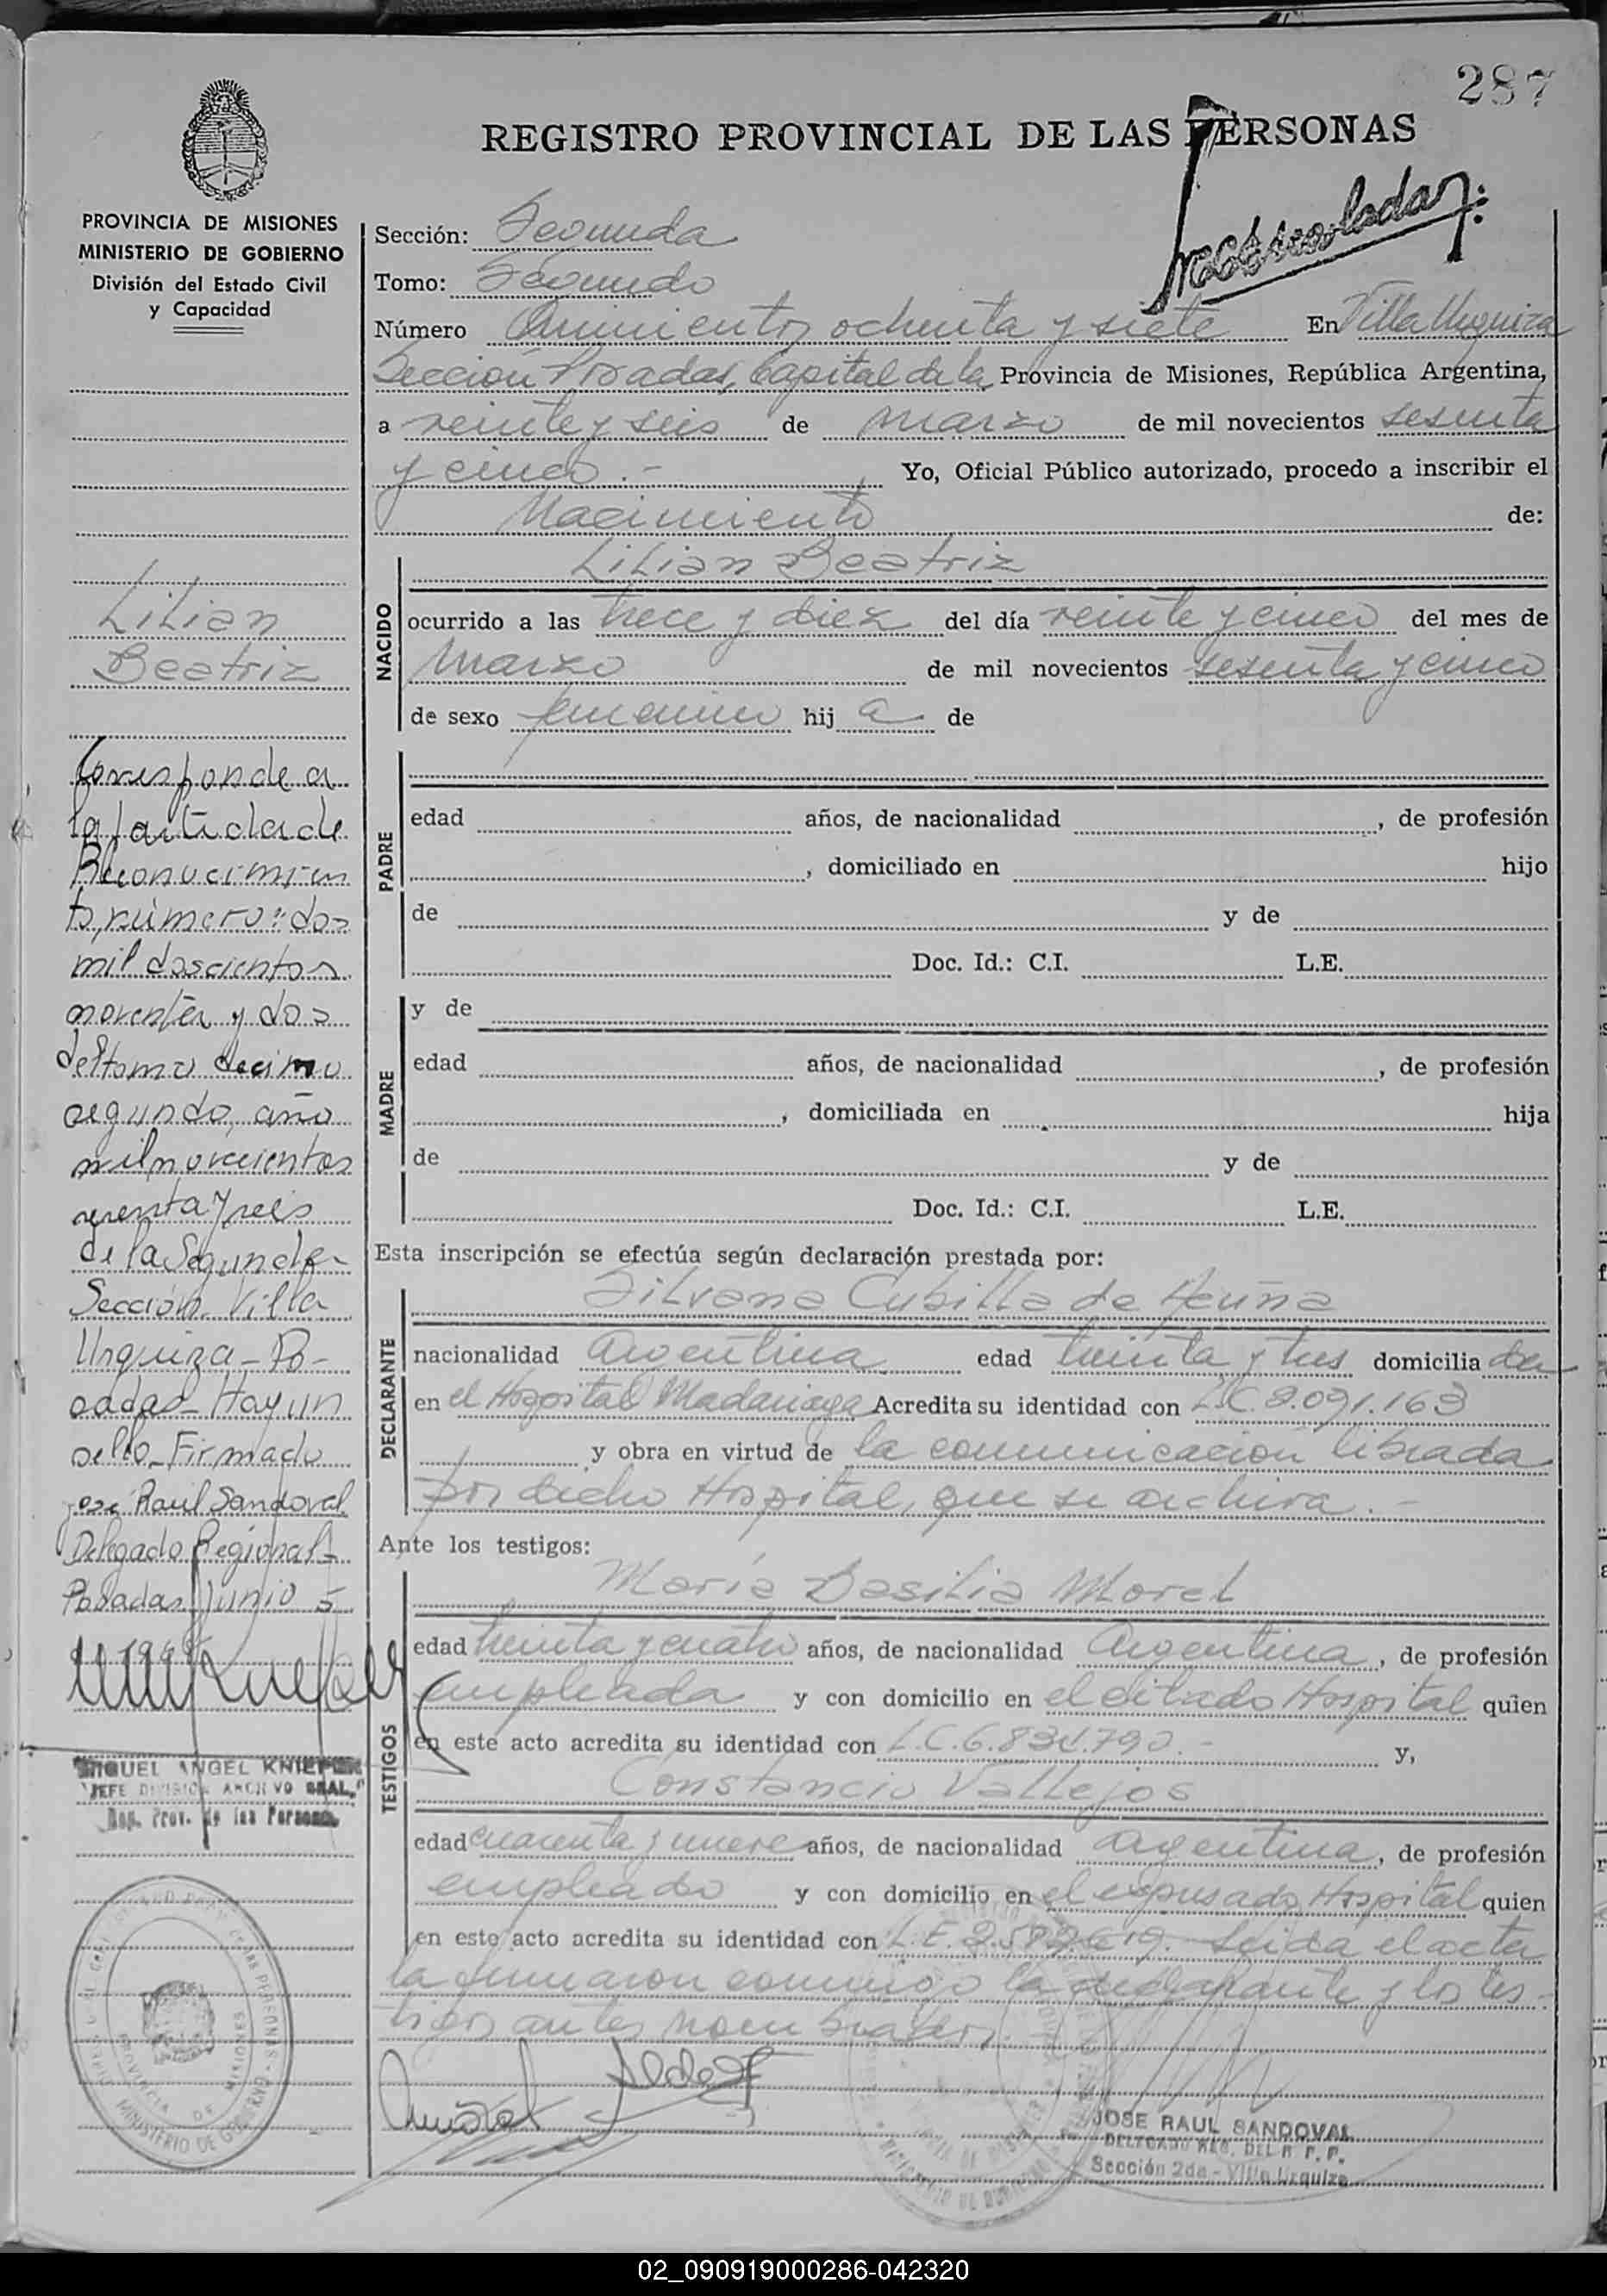 287
REGISTRO PROVINCIAL DE LAS PERSONAS
PROVINCIA DE MISIONES
MINISTERIO DE GOBIERNO
División del Estado Civil
y Capacidad
Sección: Segunda
Tomo: Segundo
Número Quinientos ochenta y siete En Villa Urquiza
Sección Posadas, Capital de la Provincia de Misiones, República Argentina,
a veinte y seis de marzo de mil novecientos sesenta
y cinco.- Yo, Oficial Público autorizado, procedo a inscribir el
Nacimiento de:
NACIDO
Lilian Beatriz
ocurrido a las trece y diez del día veinte y cinco del mes de
marzo de mil novecientos sesenta y cinco
de sexo femenino hij a de
PADRE
edad años, de nacionalidad , de profesión
, domiciliado en hijo
de y de
Doc. Id.: C.I. L.E.
MADRE
y de
edad años, de nacionalidad , de profesión
, domiciliada en hija
de y de
Doc. Id.: C.I. L.E.
Esta inscripción se efectúa según declaración prestada por:
DECLARANTE
Silvana Cubilla de Acuña
nacionalidad argentina edad treinta y tres domicilia da
en el Hospital Madariaga Acredita su identidad con L.C. 2.091.163
y obra en virtud de la comunicación librada
por dicho Hospital, que se archiva.-
Ante los testigos:
TESTIGOS
María Basilia Morel
edad treinta y cuatro años, de nacionalidad Argentina, de profesión
empleada y con domicilio en el citado Hospital quien
en este acto acredita su identidad con L.C. y,
Constancio Vallejos
edad cuarenta y nueve años, de nacionalidad argentina, de profesión
empleado y con domicilio en el expresado Hospital quien
en este acto acredita su identidad con L.E. Leida el acta
la firmaron conmigo la declarante y los tes-
tigos antes nombrados.
JOSE RAUL SANDOVAL
DELEGADO REG. DEL R. P. P.
Sección 2da - Villa Urquiza
Lilian
Beatriz
Corresponde a
la partida de
Reconocimien
to, número: dos
mil doscientos
noventa y dos
del tomo decimo
segundo, año
mil novecientos
sesenta y seis
de la Segunda
Sección Villa
Urquiza - Po-
sadas - Hay un
sello - Firmado
José Raul Sandoval
Delegado Regional -
Posadas, Junio 5
MIGUEL ANGEL KNIEPER
JEFE DIVISION ARCHIVO GRAL.
Reg. Prov. de las Personas
02_090919000286-042320